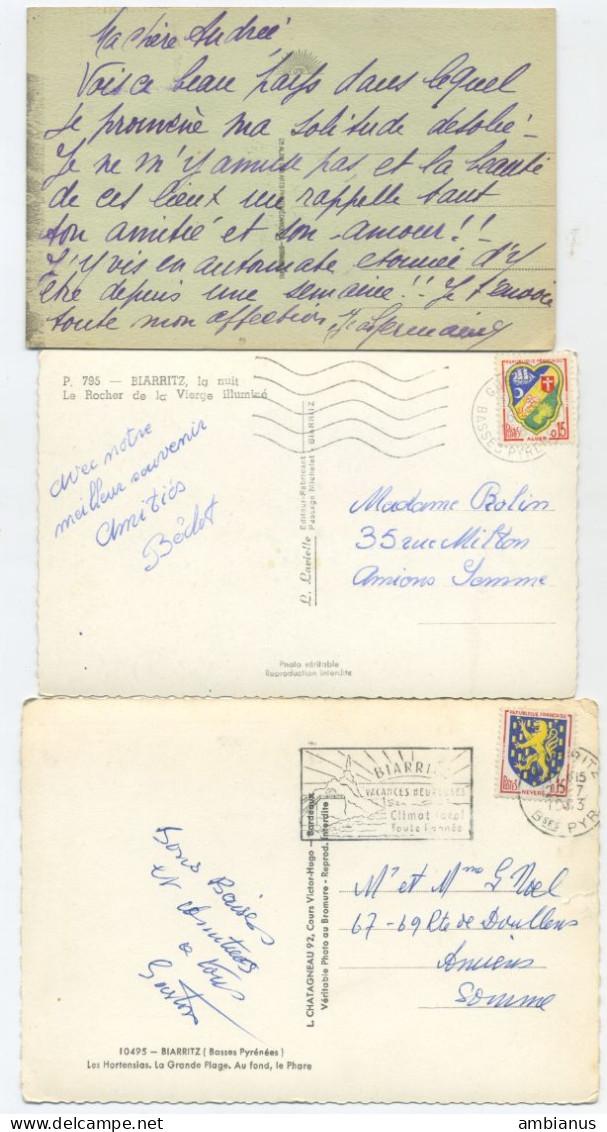 Ma chère Andrée
Vois ce beau pays dans lequel
je promène ma solitude désolée -
Je ne m'y amuse pas, et la beauté
de ces lieux me rappelle tant
ton amitié et ton amour !! -
J'y vis en automate étonnée d'y
être depuis une semaine !! Je t'envoie
toute mon affection,
P. 795 — BIARRITZ, la nuit
Le Rocher de la Vierge illuminé
REPUBLIQUE FRANÇAISE
POSTES 0,15
ALGER
BASSES PYRÉNÉES
avec notre
meilleur souvenir
Amitiés
Bédot
L. Lavielle Editeur-Fabricant
Passage Michelet - BIARRITZ
Madame Rolin
35 rue Milton
Amiens Somme
Photo véritable
Reproduction interdite
REPUBLIQUE FRANÇAISE
POSTES 0,15
NEVERS
BIARRITZ
VACANCES HEUREUSES
Climat idéal
Toute l'année
BSES PYR
Bons Baisers
et amitiés
a tous
Gaston
L. CHATAGNEAU 92, Cours Victor-Hugo - Bordeaux
Véritable Photo au Bromure - Reprod. Interdite
Mr et Mme G Noel
67-69 Rte de Doullens
Amiens
Somme
10495 — BIARRITZ (Basses Pyrénées)
Les Hortensias. La Grande Plage. Au fond, le Phare
ambianus